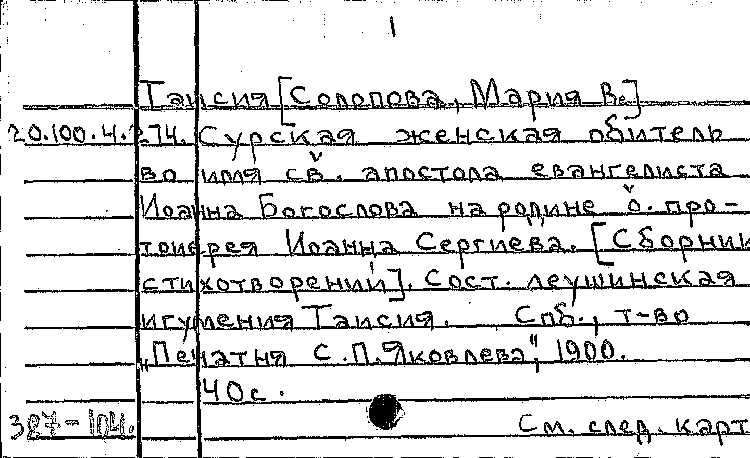 1
Таисия [Солопова, Мария В.]
20.100.4.274. Сурская женская обитель
во имя св. апостола евангелиста
Иоанна Богослова на родине о. про-
тоиерея Иоанна Сергиева. [Сборник
стихотворений]. Сост. леушинская
игумения Таисия. Спб., т-во
„Печатня С.П.Яковлева", 1900.
40с.
387-104.
См. след. карт